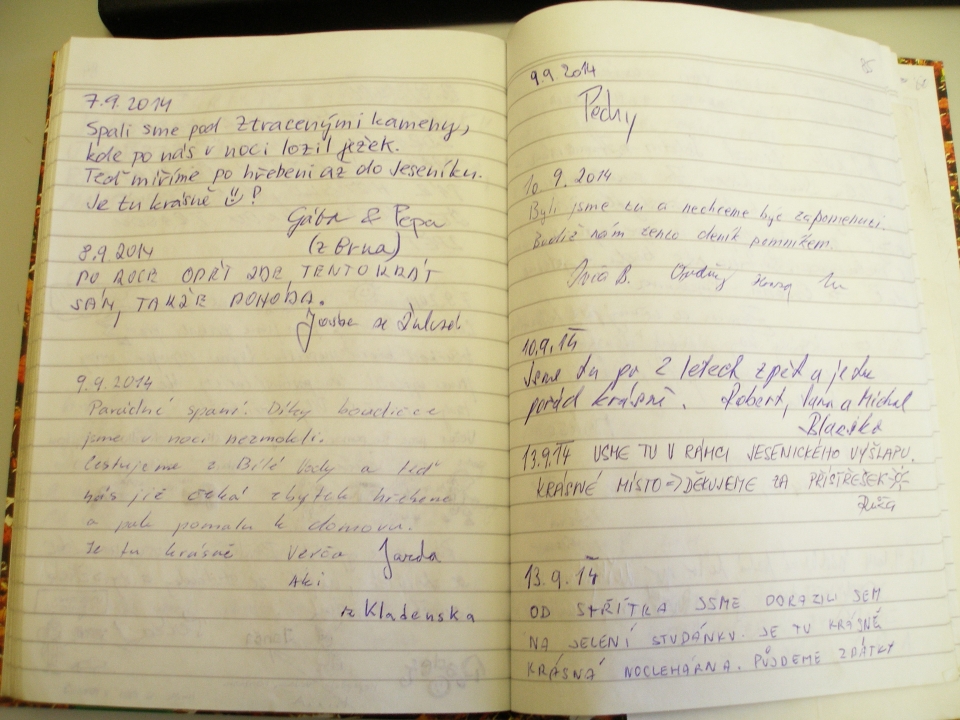 7.9.2014
Spali sme pod Ztracenými kameny,
kde po nás v noci lozil ježek.
Teď míříme po hřebeni až do Jeseníku.
Je tu krásně
Gába & Pepa
(z Brna)
8.9.2014
PO ROCE OPĚT ZDE TENTOKRÁT
SÁM, TAKŽE POHODA.
9.9.2014
Parádné spaní. Díky boudičce
jsme v noci nezmokli.
Cestujeme z Bílé Vody a teď
nás již čeká zbytek hřebene
a pak pomalu k domovu.
Je tu krásně Verča Jarda
Aki
z Kladenska
9.9.2014
Pechy
10.9.2014
Byli jsme tu a nechceme být zapomenuti.
Budiž nám tento deník pomníkem.
B.
10.9.14
Jsme tu po 2 letech zpět a je tu
pořád krásně. Robert, Jana a Michal
13.9.14 JSME TU V RÁMCI JESENICKÉHO VÝŠLAPU.
KRÁSNÉ MÍSTO => DĚKUJEME ZA PŘÍSTŘEŠEK
13.9.14
OD STŘÍTKA JSME DORAZILI SEM
NA JELENÍ STUDÁNKU. JE TU KRÁSNĚ
KRÁSNÁ NOCLEHÁRNA. PŮJDEME ZPÁTKY